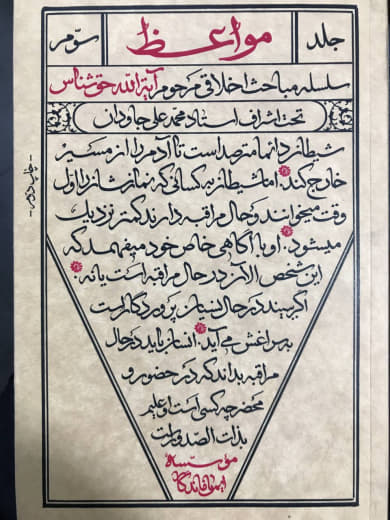 جلد
مواعظ
سوّم
سلسله مباحث اخلاقی مرحوم آیة الله حق شناس
تحت اشراف استاد محمد علی جاودان
شیطان دائما مترصد است تا آدم را از مسیر
خارج کند. اما شیطان به کسانی که نمازشان را اول
وقت میخوانند و حال مراقبه دارند کمتر نزدیک
میشود. او با آگاهی خاص خود میفهمد که
این شخص الآن در حال مراقبه است یا نه.
اگر ببیند در حال نسیان پروردگار است
به سراغش می آید. انسان باید در حال
مراقبه بداند که در حضور و
محضر چه کسی است او علیم
بذات الصدور است
موسسه
ایمان ماندگار
- چاپ دوم -